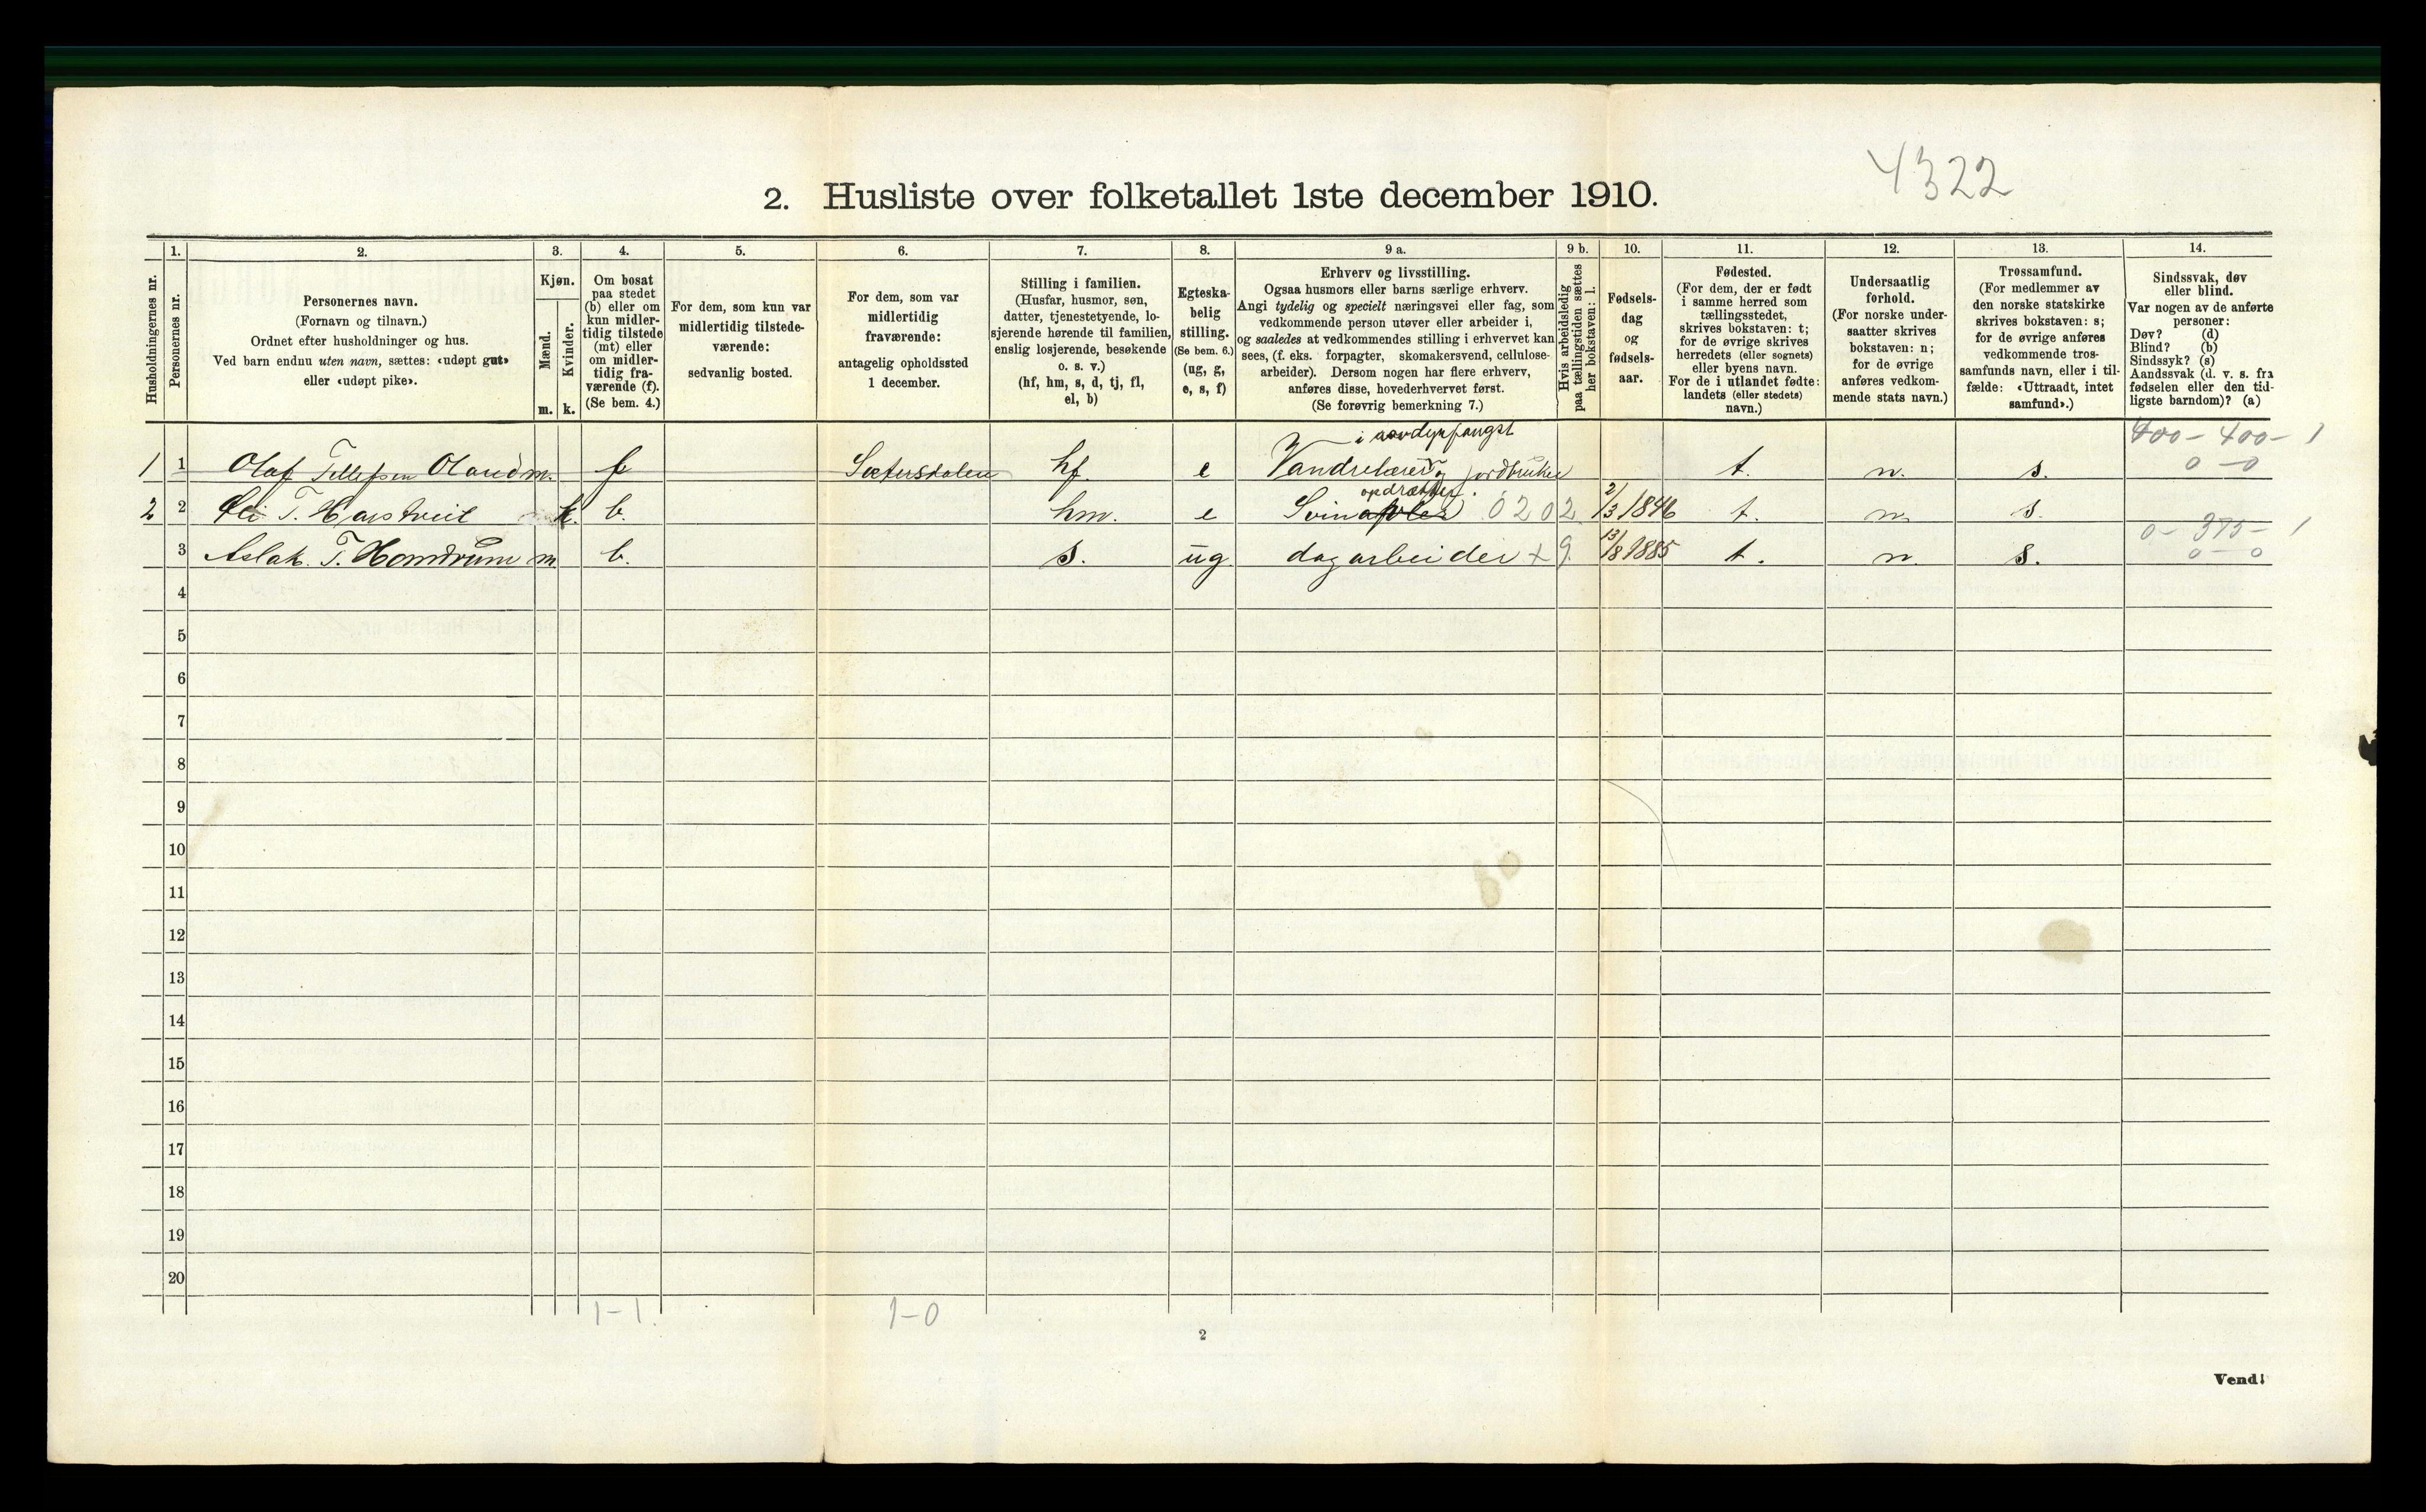 4322
2. Husliste over folketallet 1ste december 1910.
Husholdningernes nr.
1.
Personernes nr.
2.
Personernes navn.
(Fornavn og tilnavn.)
Ordnet efter husholdninger og hus.
Ved barn endnu uten navn, sættes: «udøpt gut»
eller «udøpt pike».
3.
Kjøn.
Mænd.
Kvinder.
m. k.
4.
Om bosat
paa stedet
(b) eller om
kun midler-
tidig tilstede
(mt) eller
om midler-
tidig fra-
værende (f).
(Se bem. 4.)
5.
For dem, som kun var
midlertidig tilstede-
værende:
sedvanlig bosted.
6.
For dem, som var
midlertidig
fraværende:
antagelig opholdssted
1 december.
7.
Stilling i familien.
(Husfar, husmor, søn,
datter, tjenestetyende, lo-
sjerende hørende til familien,
enslig losjerende, besøkende
o. s. v.)
(hf, hm, s, d, tj, fl,
el, b)
8.
Egteska-
belig
stilling.
(Se bem. 6.)
(ug, g,
e, s, f)
9 a.
Erhverv og livsstilling.
Ogsaa husmors eller barns særlige erhverv.
Angi tydelig og specielt næringsvei eller fag, som
vedkommende person utøver eller arbeider i,
og saaledes at vedkommendes stilling i erhvervet kan
sees, (f. eks. forpagter, skomakersvend, cellulose-
arbeider). Dersom nogen har flere erhverv,
anføres disse, hovederhvervet først.
(Se forøvrig bemerkning 7.)
9 b.
Hvis arbeidsledig
paa tællingstiden sættes
her bokstaven: l.
10.
Fødsels-
dag
og
fødsels-
aar.
11.
Fødested.
(For dem, der er født
i samme herred som
tællingsstedet,
skrives bokstaven: t;
for de øvrige skrives
herredets (eller sognets)
eller byens navn.
For de i utlandet fødte:
landets (eller stedets)
navn.)
12.
Undersaatlig
forhold.
(For norske under-
saatter skrives
bokstaven: n;
for de øvrige
anføres vedkom-
mende stats navn.)
13.
Trossamfund.
(For medlemmer av
den norske statskirke
skrives bokstaven: s;
for de øvrige anføres
vedkommende tros-
samfunds navn, eller i til-
fælde: «Uttraadt, intet
samfund».)
14.
Sindssvak, døv
eller blind.
Var nogen av de anførte
personer:
Døv? (d)
Blind? (b)
Sindssyk? (s)
Aandssvak (d. v. s. fra
fødselen eller den tid-
ligste barndom)? (a)
400 - 400 - 1
1 1 Olaf Tellefsen Oland m. f Sætersdalen hf. e Vandrelærer i rovdyrfangst og jordbruker t. n. s. 0 - 0
2 2 T. Harstveit k. b. hm. e Svin opdrætter. 0202 2/3 1846 t. n. s.
0 - 375 - 1
3 Aslak. T. Homdrum m b. s. ug. dagarbeider + 9. 13/8 1885 t. n. s. 0 - 0
4
5
6
7
8
9
10
11
12
13
14
15
16
17
18
19
20
1-1. 1-0
2
Vend!